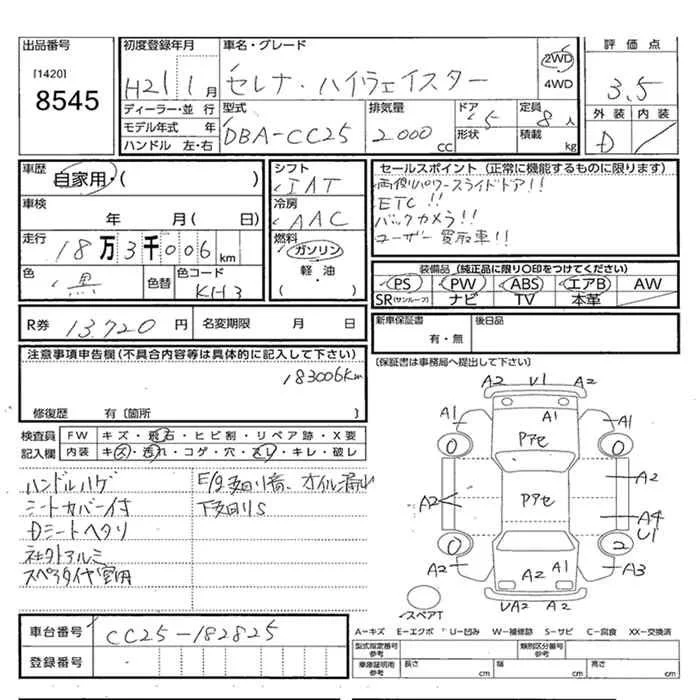 出品番号
[1420]
8545
初度登録年月
H21 1月
ディーラー・並 行
モデル年式 年
ハンドル 左・右
車名・グレード
セレナ・ハイウェイスター
2WD
4WD
型式
DBA-CC25
排気量
2000 CC
ドア
5
形状
定員
8人
積載
kg
評価点
3.5
外装 内装
D
車歴
自家用・( )
車検
年 月( 日)
走行
18万3千006km
色
黒
色替
色コード
KH3
シフト
IAT
冷房
AAC
燃料
ガソリン
軽・油
( )
セールスポイント (正常に機能するものに限ります)
両側パワースライドドア!!
ETC!!
バックカメラ!!
ユーザー買取車!!
装備品 (純正品に限り○印をつけてください)
PS PW ABS エアB AW
SR(サンルーフ) ナビ TV 本革
R券 13,720円 名変期限 月 日
新車保証書
有・無
後日品
(保証書は事務局へ提出して下さい)
注意事項申告欄(不具合内容等は具体的に記入して下さい)
183006Km
修復歴 有〔箇所 〕
検査員
記入欄
FW キズ・飛石・ヒビ割・リペア跡・X要
内装 キズ・汚れ・コゲ・穴・スレ・キレ・破レ
ハンドルハゲ
シートカバー付
Dシートヘタリ
社外アルミ
スペアタイヤ
オイル漏れ
下廻りS
A2 U1 A2
A1 A1 A1
Pアセ
0 0
Pアセ
A2 A2
A4
U1
0 2
A2 A2 A1 A3
UA2 A2
スペアT
車台番号 CC25-182825
登録番号
A-キズ E-エクボ U-凹み W-補修跡 S-サビ C-腐食 XX-交換済
型式指定番号
参考
類別区分番号
参考
車庫証明用
参考
長さ cm 幅 cm 高さ cm